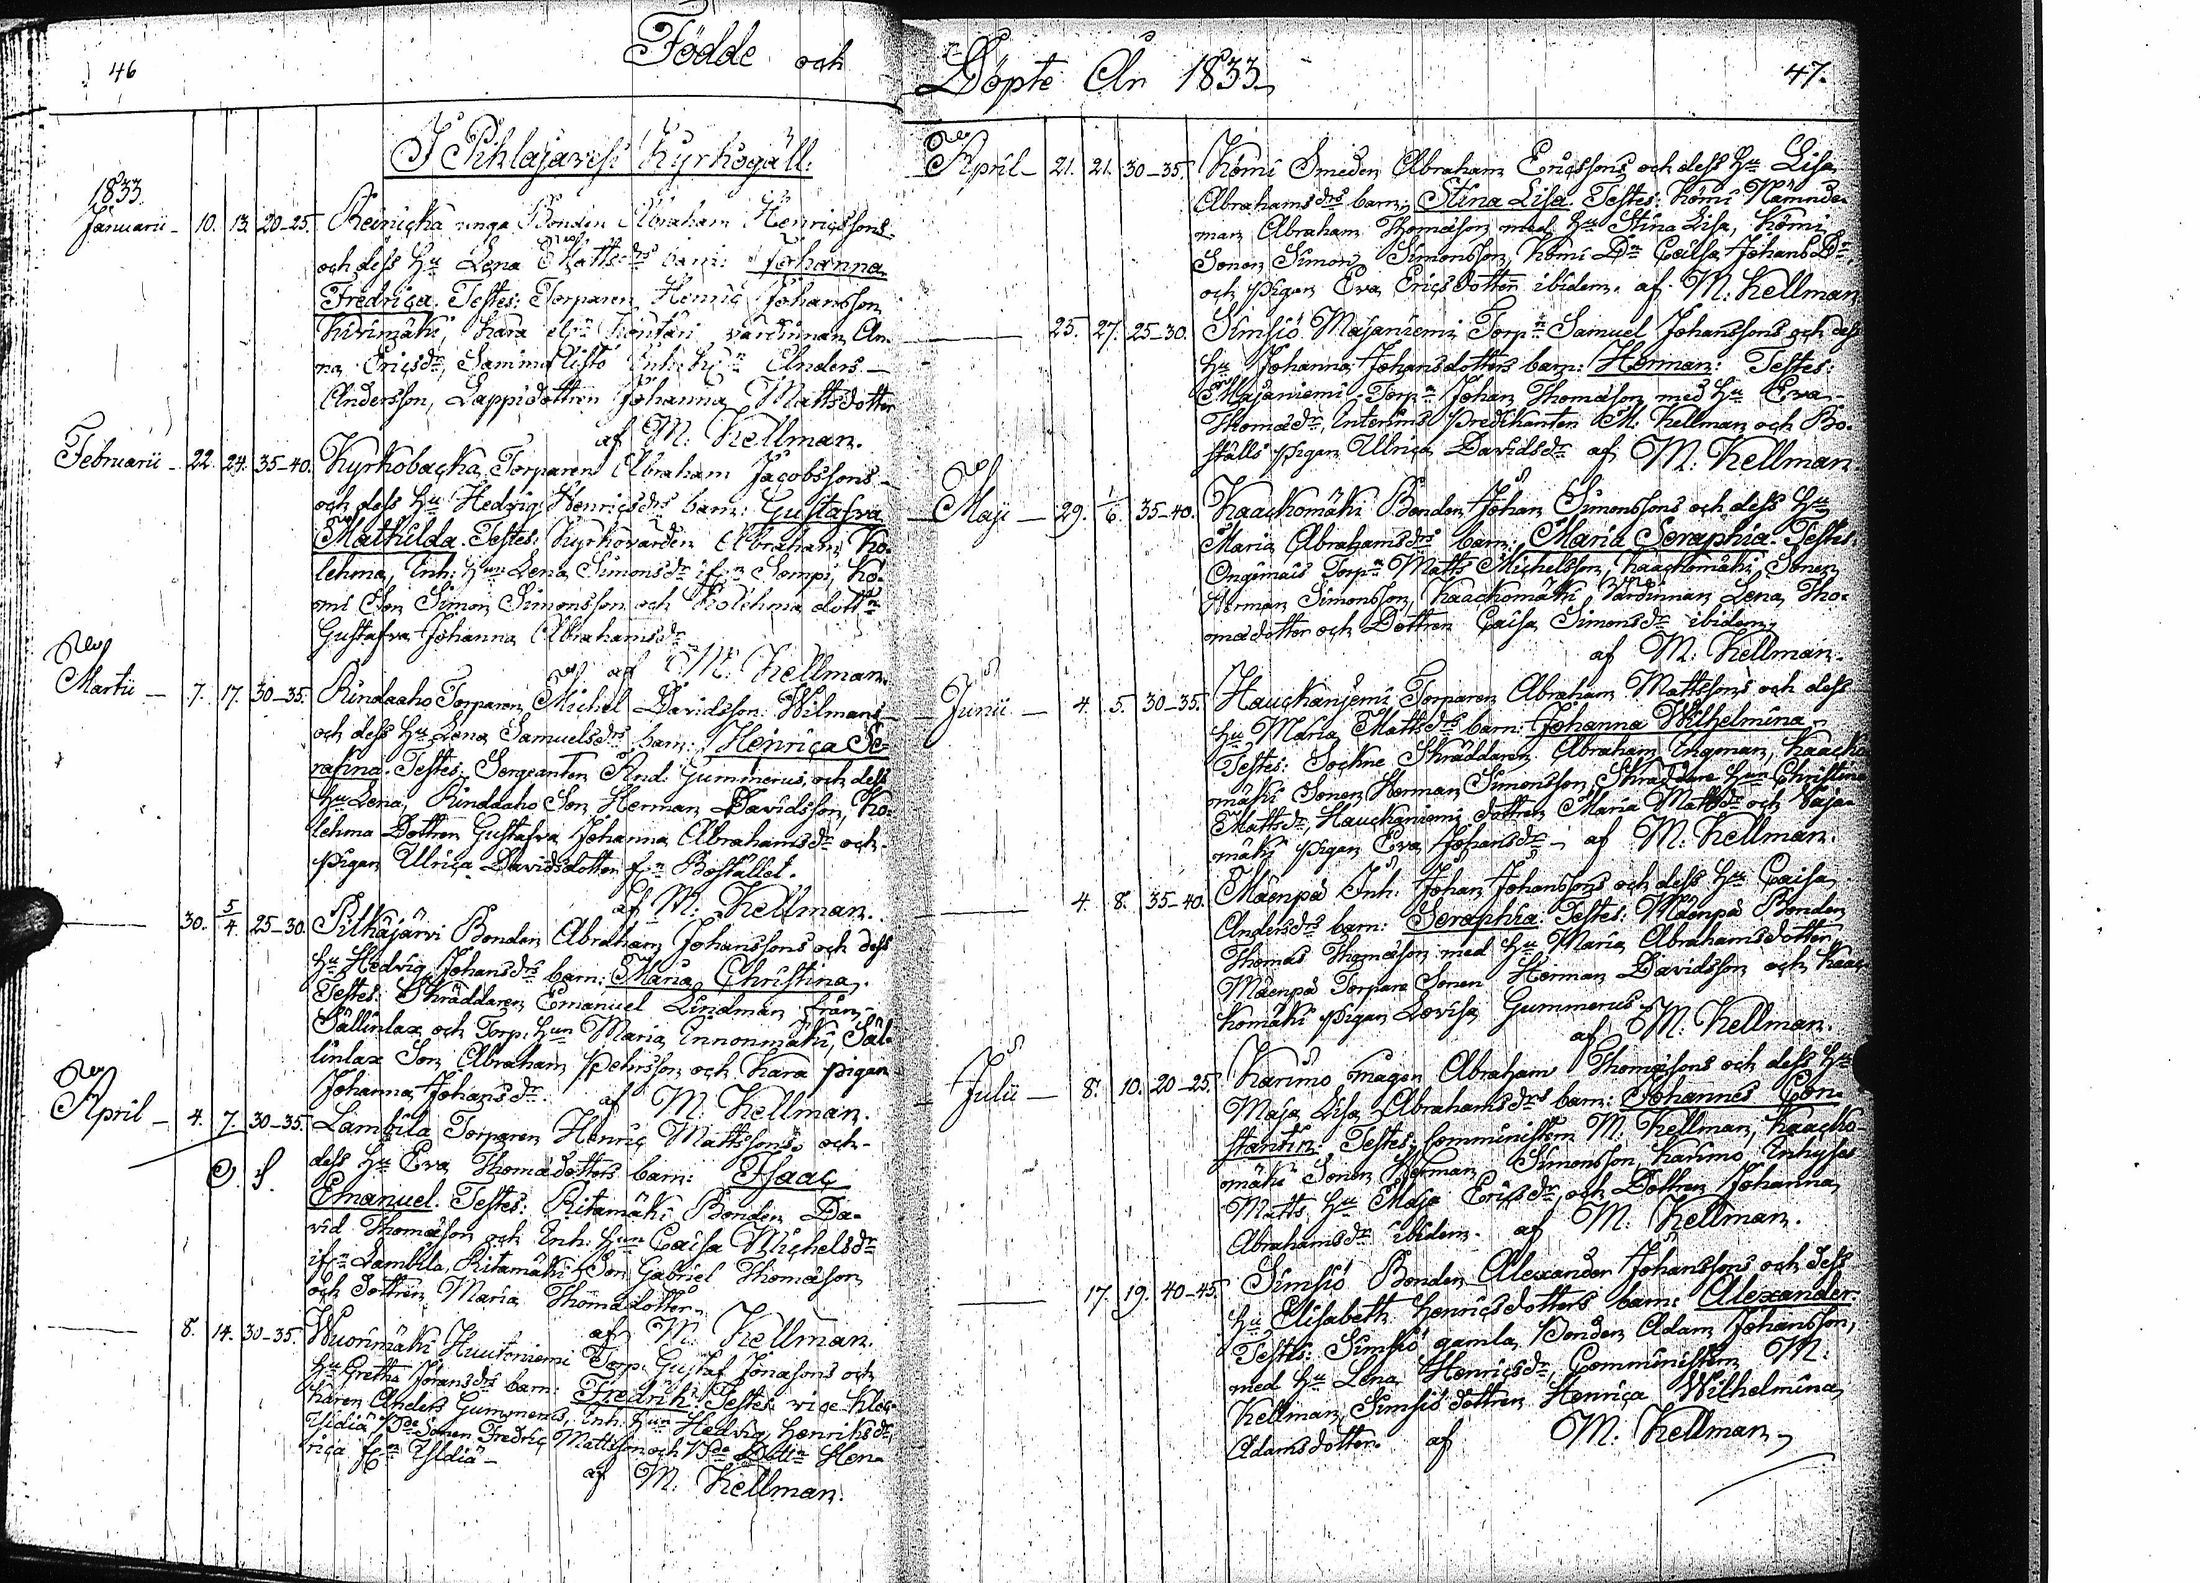 46
Födde och
I Pihlajavesi Kyrkogäll:
1833.
Januarii - 10. 13. 20-25. Reinicka unga Bonden Abraham Henricssons
och dess Hu Lena Mattsdrs barn: Johanna
Fredrica. Testes: Torparen Henric Johansson
Kivimäki, Kara värdinnan An-
na Ericsdr, Anders
Andersson, Lappi dottren Johanna Mattsdotter
af M: Kellman.
Februarii - 22. 24. 35-40. Kyrkobacka Torparen Abraham Jacobssons
och dess Hu Hedvig Henricsdrs barn: Gustafva
Mathilda. Testes: Kyrkovärden Abraham Ko-
lehma, Inh: Hun Lena Simonsdr ifrn Sompi, Kö-
mi Son Simon Simonsson och Kolehma dottrn
Gustafva Johanna Abrahamsdr
af M: Kellman.
Martii - 7. 17. 30-35. Rindaaho Torparen Michel Davidsson Wilmans
och dess Hu Lena Samuelsdrs barn: Henrica Se-
rafina. Testes: Sergeanten And: Gummerus och dess
Hu Lena, Rindaaho Son Herman Davidsson, Ko-
lehma Dottren Gustafva Johanna Abrahamsdr och
pigan Ulrica Davidsdotter frn Bostället.
af M: Kellman.
30. 5/4 25-30. Pitkäjärvi Bonden Abraham Johanssons och dess
Hu Hedvig Johansdrs barn: Maria Christina.
Testes: Skräddaren Emanuel Lindman från
Sällinlax och Torp: Hun Maria Innonmäki, Säl-
linlax Son Abraham Pehrsson och Kara pigan
Johanna Johansdr. af M: Kellman.
April - 4. 7. 30-35. Lambila Torparen Henric Mattssons och
dess Hu Eva Thomasdotters barn: Isaac
Emanuel. Testes: Ritamäki Bonden Da-
vid Thomasson och Inh: Hun Caisa Michelsdr
ifrn Lambila, Ritamäki Son Gabriel Thomasson
och dottren Maria Thomasdotter
af M: Kellman.
8. 14. 30-35. Wuorimäki Huutoniemi Torp: Gustaf Jonassons och
Hu Gretha Jöransdrs barn: Fredrik. Testes: vice Kloc-
karen Anders Gummerus, Inh: Hun Hedvig Henriksdr
Ylidiä, Bde Sonen Fredric Mattsson och Bde Dottrn Hen-
rica frn Ylidiä
af M: Kellman.
Döpte År 1833
47.
April - 21. 21. 30-35. Kömi Smeden Abraham Ericssons och dess Hu Lisa
Abrahamsdrs barn: Stina Lisa. Testes: Kömi Nämnde-
man Abraham Thomasson med Hu Stina Lisa, Kömi
Sonen Simon Simonsson, Kömi Dn Caisa JohansDr
och pigan Eva Ericsdotter ibidem. af M: Kellman
25. 27. 25-30. Simsiö Majaniemi Torpn Samuel Johanssons och dess
Hu Johanna Johansdotters barn: Herman: Testes:
Majaniemi Torpn Johan Thomasson med Hu Eva
Thomasdr, Interims Predikanten M: Kellman och Bo-
ställs pigan Ulrica Davidsdr af M: Kellman
Maji - 29. 1/6. 35-40. Kaackomäki Bonden Johan Simonssons och dess Hu
Maria Abrahamsdrs barn: Maria Seraphia. Testes:
Torpn Matts Michelsson, Kaackomäki Sonen
Herman Simonsson, Kaackomäki Värdinnan Lena Tho-
masdotter och Dottren Caisa Simonsdr ibidem,
af M: Kellman.
Junii - 4. 5. 30-35. Hauckaniemi Torparen Abraham Mattssons och dess
Hu Maria Mattsdrs barn: Johanna Wilhelmina.
Testes: Sockne Skräddaren Abraham Ingman, Kaacko-
mäki Sonen Herman Simonsson, Skräddare Hun Christina
Mattsdr, Hauckaniemi dottren Maria Mattsdr och Vaja-
mäki pigan Eva Johansdr - af M: Kellman.
4. 8. 35-40. Mäenpä Inh: Johan Johanssons och dess Hu Caisa
Andersdrs barn: Seraphia. Testes: Mäenpä Bonden
Thomas Thomasson med Hu Maria Abrahamsdotter,
Mäenpä Torpare Sonen Herman Davidsson och Kaac-
komäki pigan Lovisa Gummerus.
af M: Kellman.
Julii - 8. 10. 20-25. Karimo magen Abraham Thomassons och dess Hu
Maja Lisa Abrahamsdrs barn: Johannes Con-
stantin. Testes: Comministern M: Kellman, Kaacko-
mäki Sonen Herman Simonsson, Karimo Inhyses
Matts Hu Maja Ericsdr, och Dottren Johanna
Abrahamsdr ibidem. af M: Kellman.
17. 19. 40-45. Simsiö Bonden Alexander Johanssons och dess
Hu Elisabeth Henricsdotters barn: Alexander.
Testes: Simsiö gamla Bonden Adam Johansson,
med Hu Lena Henricsdr, Comministern M:
Kellman, Simsiö dottren Henrica Wilhelmina
Adamsdotter. af M: Kellman